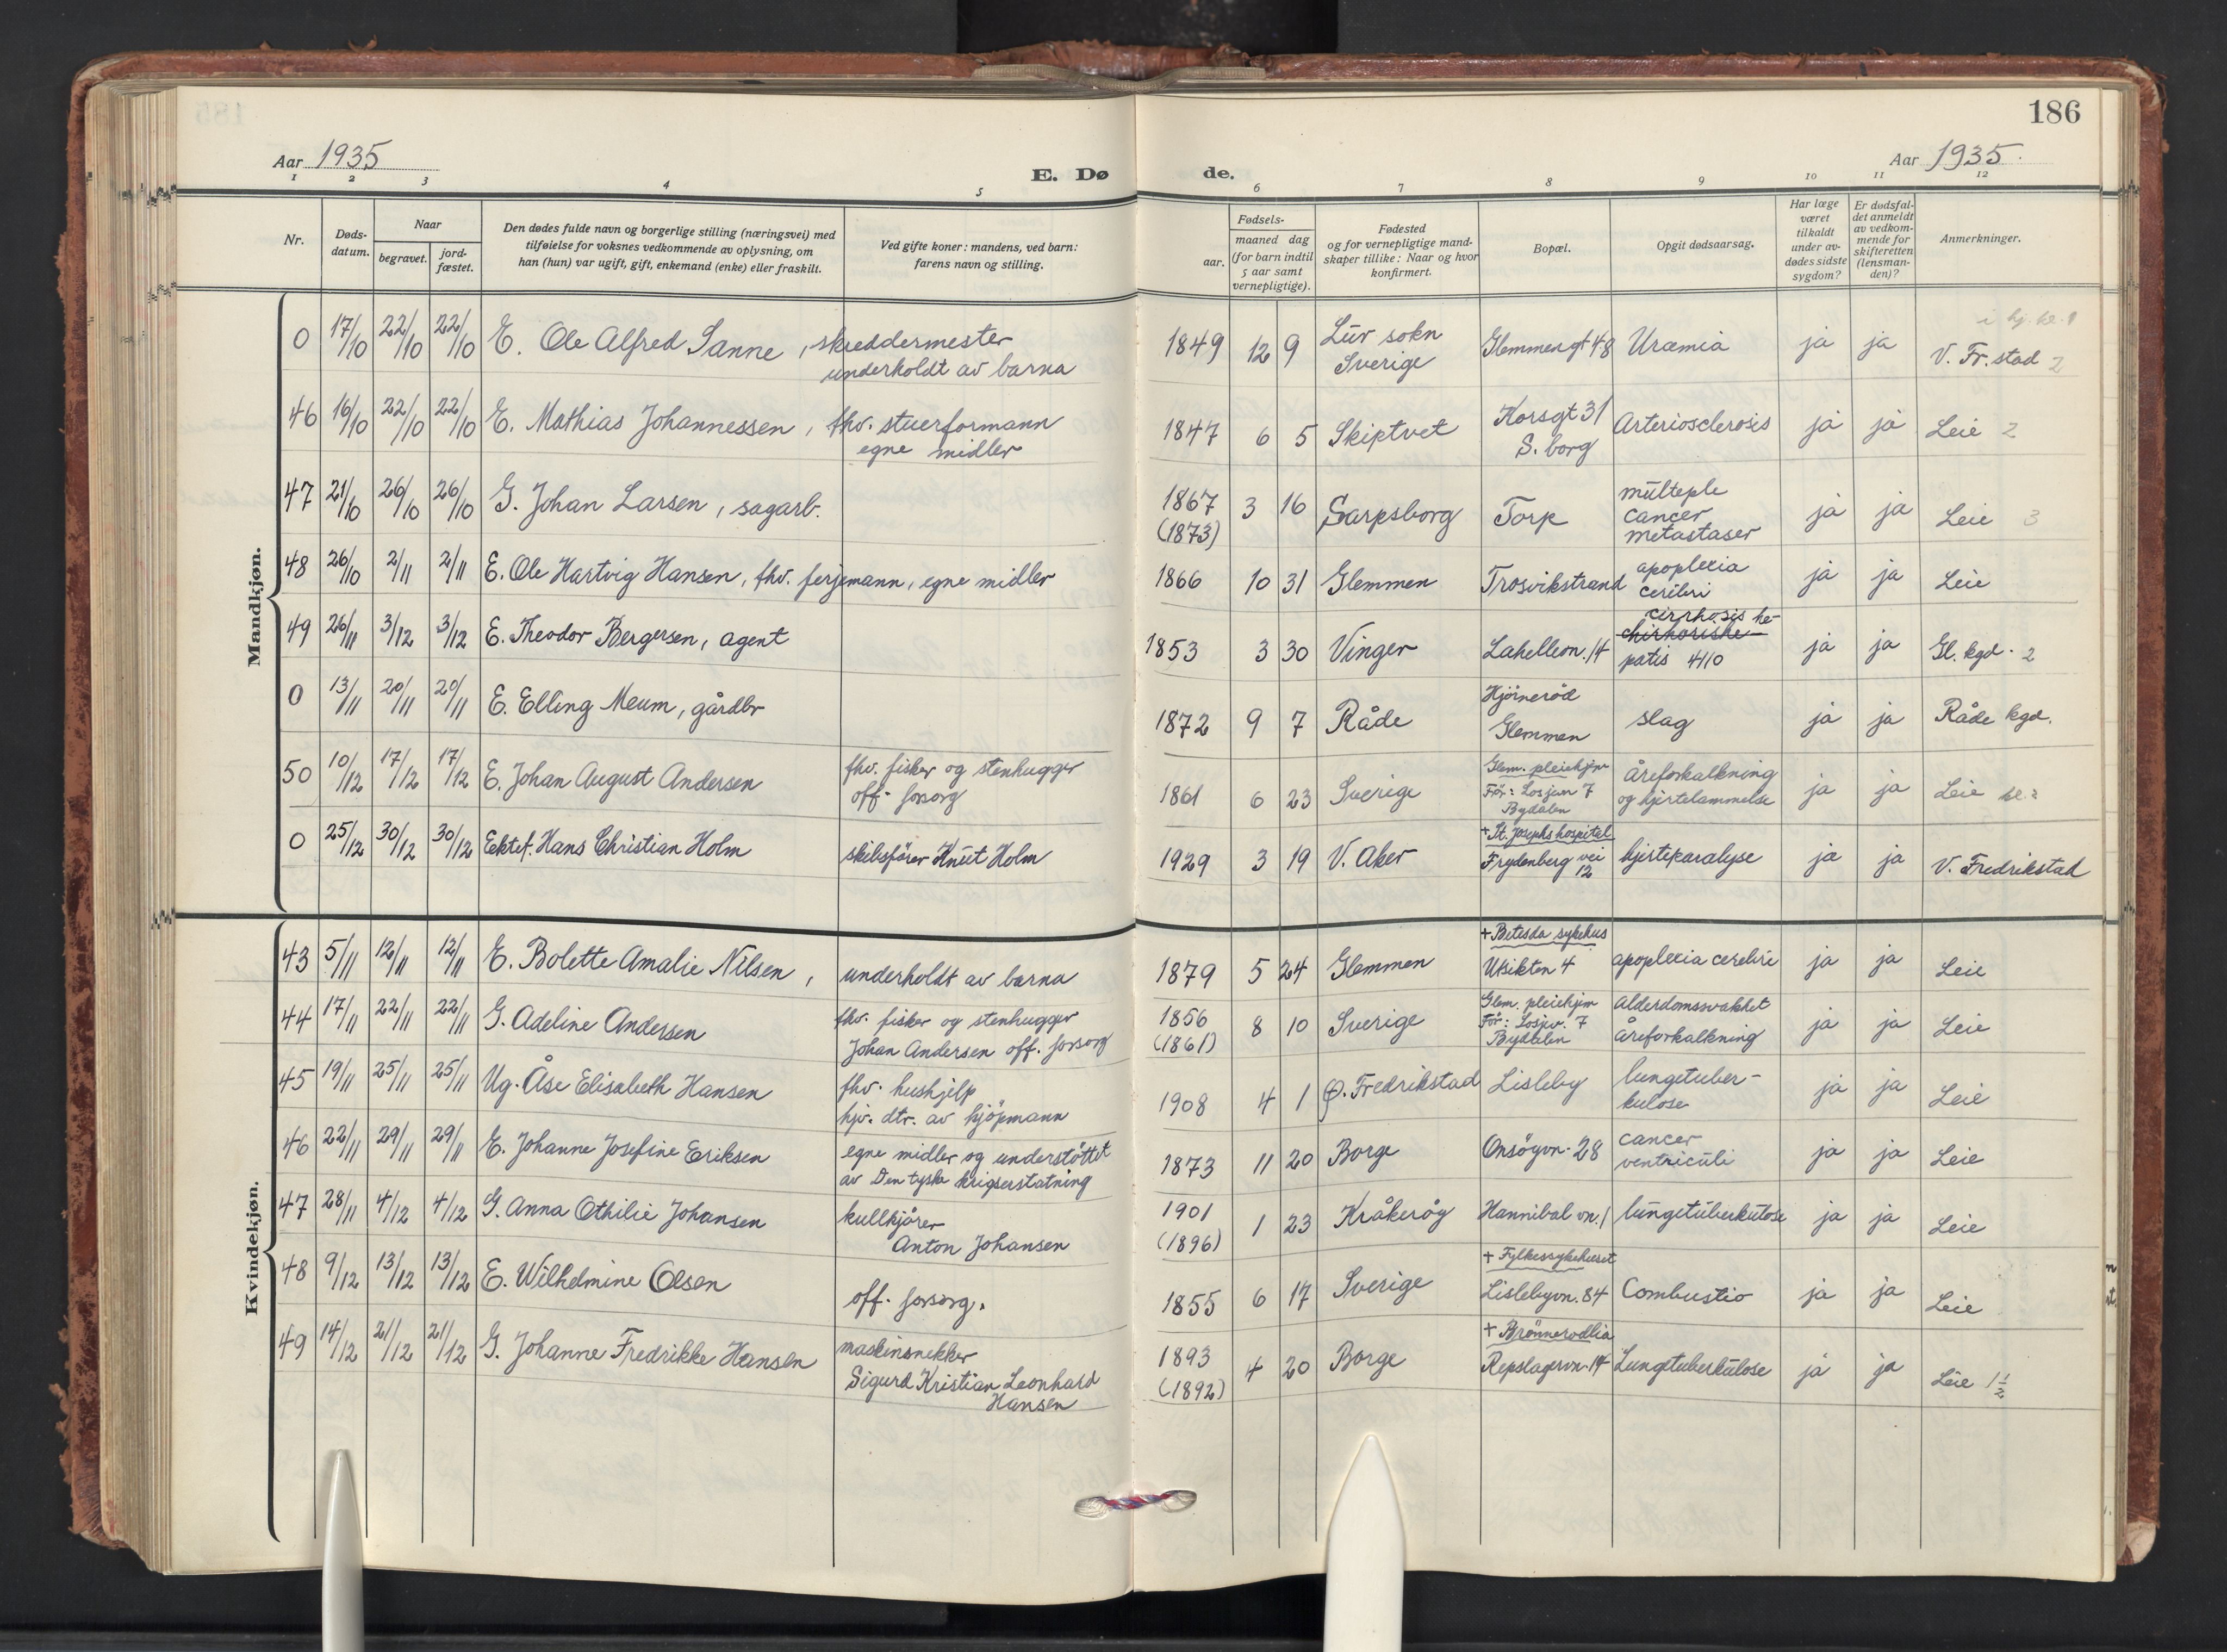 186
Aar 1935
E. Dø
de.
Aar 1935.
1 2 3 4 5 6 7 8 9 10 11 12
Nr.
Døds-
datum.
Naar
begravet.
jord-
fæstet.
Den dødes fulde navn og borgerlige stilling (næringsvei) med
tilføielse for voksnes vedkommende av oplysning, om
han (hun) var ugift, gift, enkemand (enke) eller fraskilt.
Ved gifte koner: mandens, ved barn:
farens navn og stilling.
Fødsels-
aar.
maaned dag
(for barn indtil
5 aar samt
vernepligtige).
Fødested
og for vernepligtige mand-
skaper tillike: Naar og hvor
konfirmert.
Bopæl.
Opgit dødsaarsag.
Har læge
været
tilkaldt
under av-
dødes sidste
sygdom?
Er dødsfal-
det anmeldt
av vedkom-
mende for
skifteretten
(lensman-
den)?
Anmerkninger.
Mandkjøn.
0 17/10 22/10 22/10 E. Ole Alfred Sanne, skreddermester
underholdt av barna
1849 12 9 Lur sokn
Sverige
Glemmengt 48 Uræmia ja ja V. Fr.stad 2
46 16/10 22/10 22/10 E. Mathias Johannessen, fhv. stuerformann
egne midler
1847 6 5 Skiptvet Korsgt 31
S. borg
Arteriosclerosis ja ja Leie 2
47 21/10 26/10 26/10 G. Johan Larsen, sagarb.
1867
(1873)
3 16 Sarpsborg Torp multeple
cancer
metastaser
ja ja Leie 3
48 26/10 2/11 2/11 E. Ole Hartvig Hansen, fhv. ferjemann, egne midler
1866 10 31 Glemmen Trosvikstrand apoplexia
cerebri
ja ja Leie
49 26/11 3/12 3/12 E. Theodor Bergersen, agent
1853 3 30 Vinger Lahellevn. 14 cirrhosis he-
patis 4/10
ja ja Gl. kgd. 2
0 13/11 20/11 20/11 E. Elling Meum, gårdbr
1872 9 7 Råde Hjørnerød
Glemmen
slag ja ja Råde kgd.
50 10/12 17/12 17/12 E. Johan August Andersen fhv. fisker og stenhugger
off. forsorg
1861 6 23 Sverige Glem. pleiehjm
Før: Losjevn 7
Bydalen
åreforkalkning
og hjertelammelse
ja ja Leie
0 25/12 30/12 30/12 Ektef. Hans Christian Holm skibsfører Knut Holm
1929 3 19 V. Aker + St. Josephs hospital
Frydenberg vei
12
hjerteparalyse ja ja V. Fredrikstad
Kvindekjøn.
43 5/11 12/11 12/11 E. Bolette Amalie Nilsen, underholdt av barna
1879 5 24 Glemmen + Betesda sykehus
Utsikten 4
apoplexia cerebri ja ja Leie
44 17/11 22/11 22/11 G. Adeline Andersen fhv. fisker og stenhugger
Johan Andersen off. forsorg
1856
(1861)
8 10 Sverige Glem. pleiehjm
Før: Losjev. 7
Bydalen
alderdomssvakhet
åreforkalkning
ja ja Leie
45 19/11 25/11 25/11 Ug. Åse Elisabeth Hansen fhv. hushjelp
hjv. dtr. av kjøpmann
1908 4 1 Ø. Fredrikstad Lisleby lungetuber-
kulose
ja ja Leie
46 22/11 29/11 29/11 E. Johanne Josefine Eriksen egne midler og understøttet
av Den tyske krigserstatning
1873 11 20 Borge Onsøyvn. 28 cancer
ventriculi
ja ja Leie
47 28/11 4/12 4/12 G. Anna Othilie Johansen kullkjører
Anton Johansen
1901
(1896)
1 23 Kråkerøy Hannibal vn. 1 lungetuberkulose ja ja Leie
48 9/12 13/12 13/12 E. Wilhelmine Olsen off. forsorg.
1855 6 17 Sverige + Fylkessykehuset
Lislebyvn. 84
Combustio ja ja Leie
49 14/12 21/12 21/12 G. Johanne Fredrikke Hansen maskinsnekker
Sigurd Kristian Leonhard
Hansen
1893
(1892)
4 20 Borge + Brønnerødlia
Repslagervn. 14
Lungetuberkulose ja ja Leie 1½